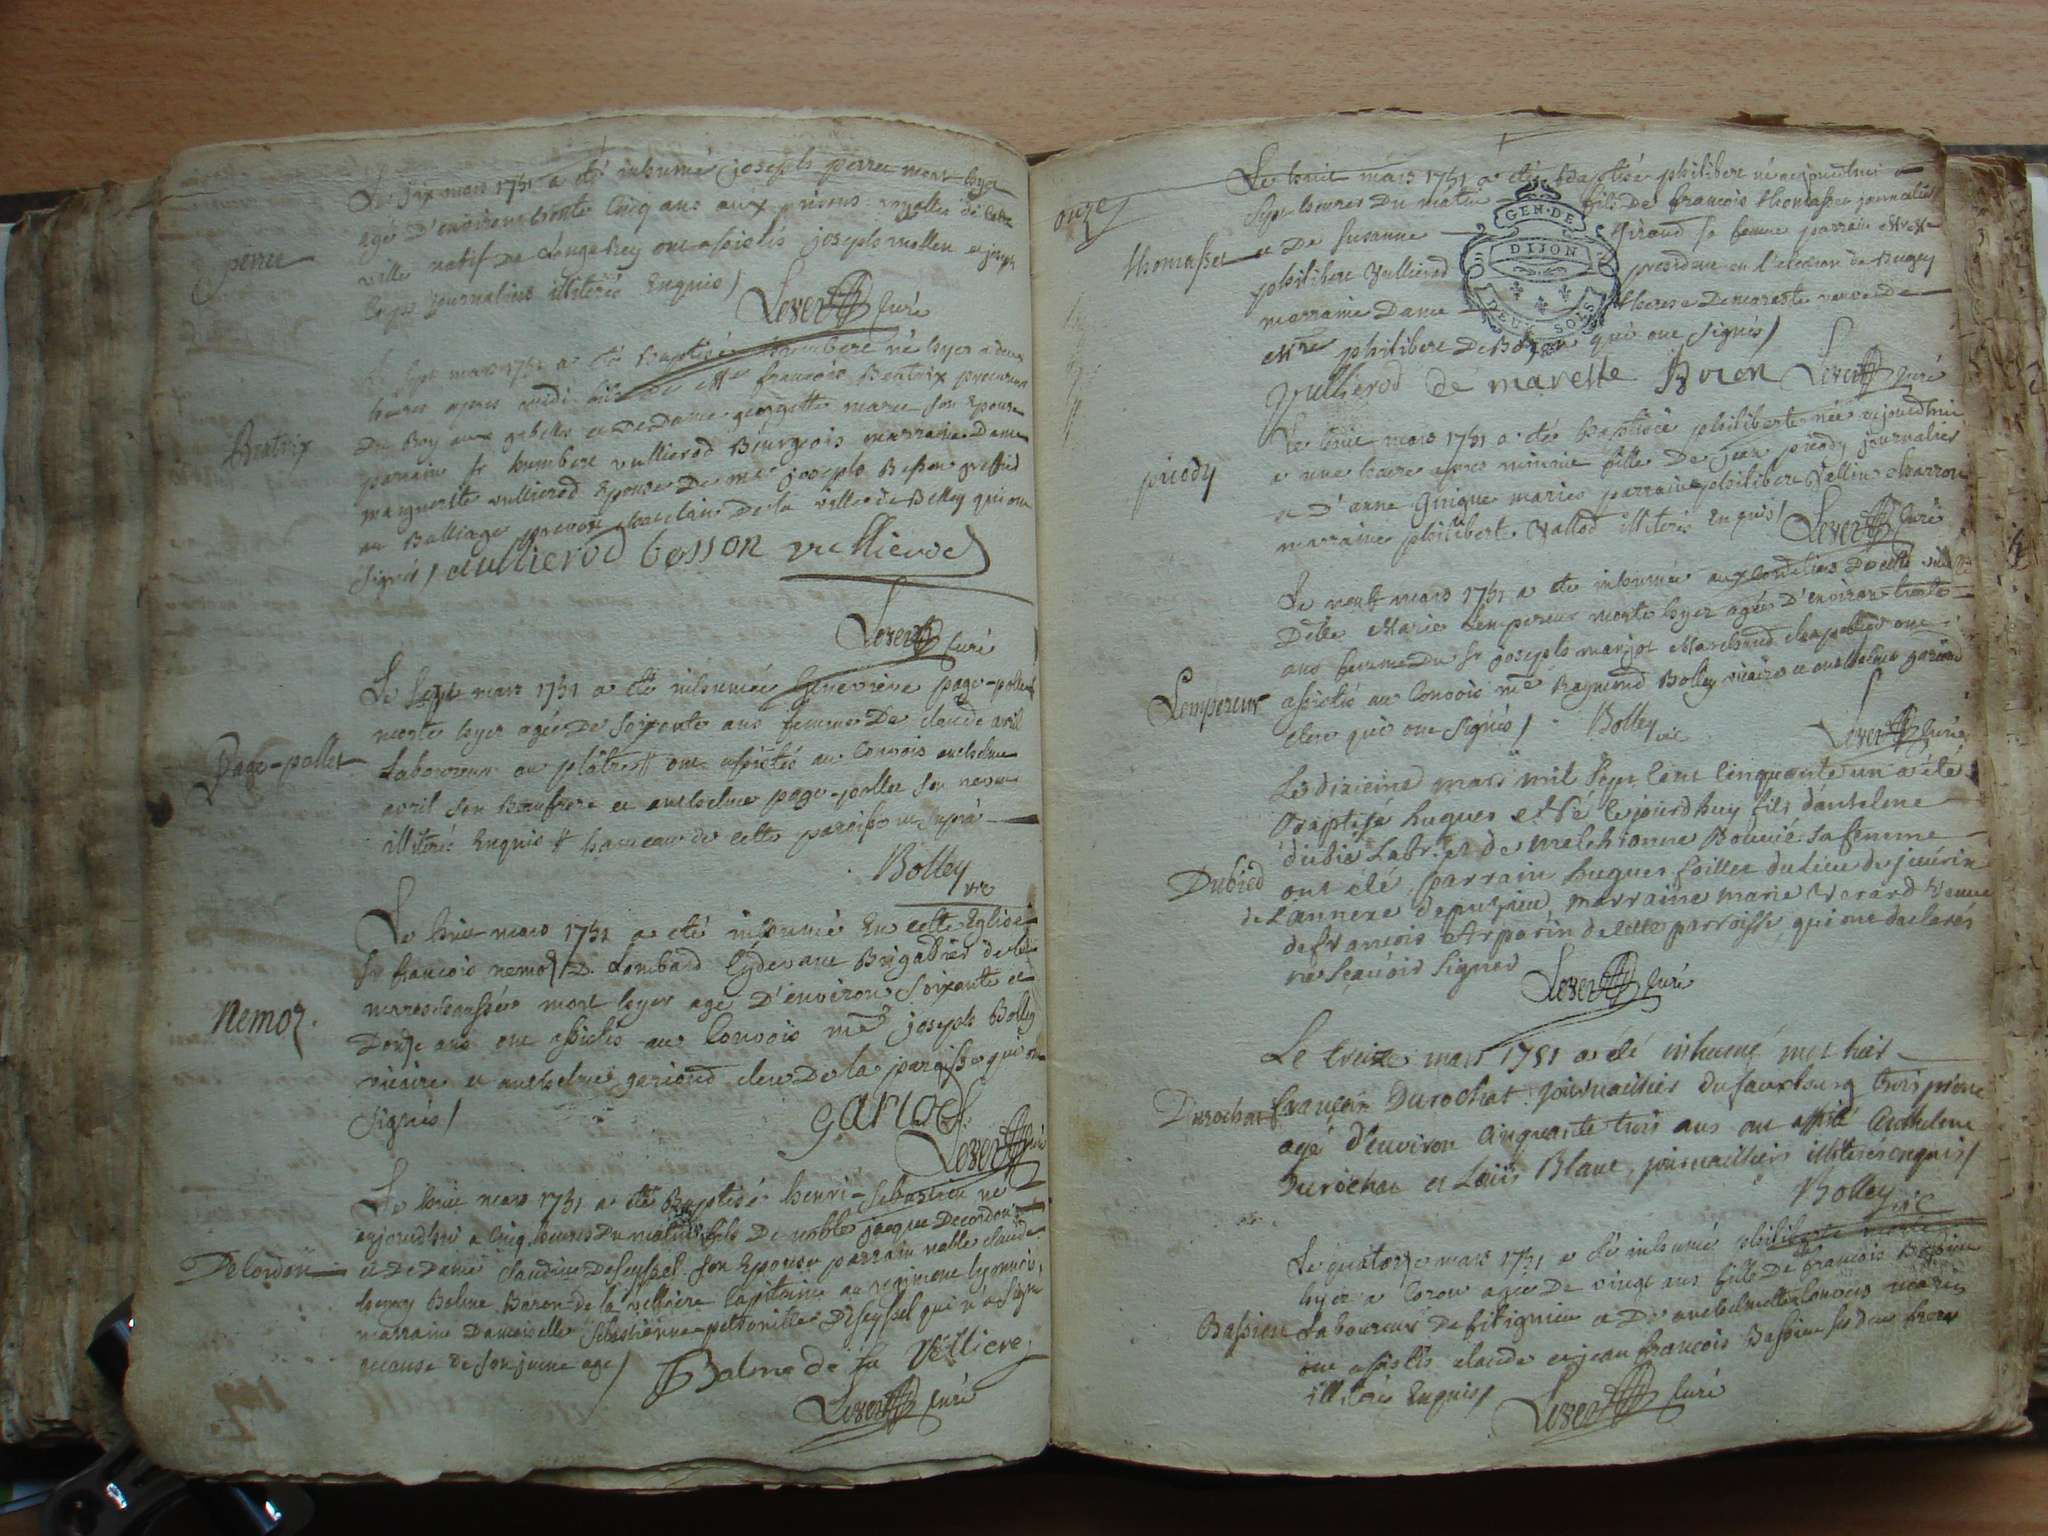 Le six mars 1751 a été inhumé joseph perru mort hyer
agé D'environ trente cinq ans aux prisons royalles de cette
perru
ville natif de Longekrey ont assistés joseph mollen et joseph
journaliers illiterés Enquis /
Levert Curé
Le sept mars 1751 a été Baptisé humbert né hyer a deux
heures apres midi fils de Mre francois Beatrix procureur
Du Roy aux gabelles et de dame georgette marie son Epouse
Beatrix
parrain sr humbert vullierod Bourgeois marraine Dame
marguerite vullierod Epouse De me joseph Besson greffier
au Balliage prevot chatelain De la ville de Belley qui ont
signés / vullierod besson vullierod
Levert Curé
Le sept mars 1751 a été inhumée Genevieve page-pollet
morte hyer agée De soixante ans femme De claude avril
Page-pollet
Laboureur au plâtre # ont assistés au convois anthelme
avril son Beaufrere et anthelme page-pollet son neveu
illiterés Enquis # hameau de cette paroisse
Bolley vic
Le huit mars 1751 a été inhumé En cette Eglise
sr francois nemoz D. Lombard cydevant Brigadier de la
Nemoz.
marechaussée mort hyer agé D'environ soixante et
Douze ans ont assistés au Convois me joseph Bolley
vicaire et anthelme gariond clerc De la paroisse qui ont
signés /
gariod
Levert Curé
Le huit mars 1751 a été Baptisé henri-sebastien né
aujourdhui a cinq heures Du matin fils De noble jacque Decordon
Decordon
et De Dame Claudine Deseyssel son Epouse parrain noble claude
henry Balme Baron de la velliere Capitaine au regiment lyonnois,
marraine Damoiselle sebastienne-petronille Deseyssel qui n'a signé
accause de son jeune age /
Balme de la Velliere
Levert Curé
onze
Le huit mars 1751 a été Baptisé philibert né aujourdhui a
sept heures Du matin fils De francois thomasset journalier
thomasset
et De susanne Giroud sa femme parrain Mre
philibert Vullierod president en l'election de Bugey
marraine Dame therese Demareste veuve de
Mre philibert De Bozon qui ont signés /
GEN. DE
DIJON
DEUX SOLS
Vullierod de mareste Buzon Levert Curé
Le huit mars 1751 a été Baptisée philiberte née aujourdhui
a une heure apres minuit fille De jean picody journalier
picody
et D'anne Guigue mariés parrain philibert Vellin charron
marraine philiberte Vallod illiterés Enquis / Levert Curé
Le neuf mars 1751 a été inhumée aux cordeliers De cette ville
Delle Marie Lempereur morte hyer agée D'environ trente
ans femme Du sr joseph marjot Marchand chapellier ont
Lempereur
assistés au Convois me Raymond Bolley vicaire et anthelme gariond
clerc qui ont signés / Bolley vic Levert Curé
Le dixieme mars mil sept cent cinquante un a été
Baptisé hugues né le jourd huy fils d'antelme
dubié Labr. et de melchionne Bouvié sa femme
Dubied
ont été parrain hugues faillet du lieu de
de L'annexe depugieu marraine marie verard veuve
de françois Arparin de cette parroisse qui ont declarés
ne sçavoir signer
Levert Curé
Le treize mars 1751 a été inhumé mort hier
Durochat
françois Durochat journailier du fauxbourg
agé d'environ cinquante trois ans ont assisté Anthelme
Durochat et Loüis Blanc, journailliers illiterés enquis /
Bolley vic
Le quatorze mars 1751 a été inhumé philiberte morte
hyer a Coron agée De vingt ans fille De francois Bassieu
Bassieu
Laboureur De fitignieu et D'anthelmette mariés
ont assistés claude et jean francois Bassieu ses deux freres
illiterés Enquis /
Levert Curé